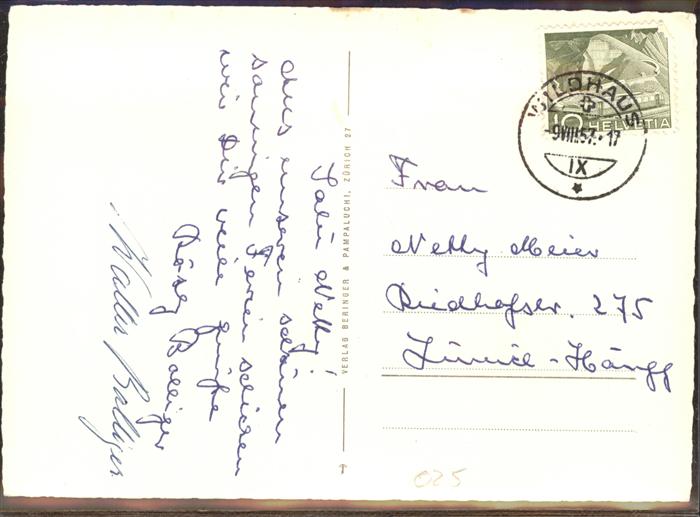 Salü Netty!
Aus unseren schönen
sonnigen Ferien schicken
wir Dir viele grüsse
Rösy Bolliger
Walter Bolliger
VERLAG BERINGER & PAMPALUCHI, ZÜRICH 27
10 HELVETIA
WILDHAUS
-9.VIII.57.-17
IX
Frau
Netty Meier
Riedhofstr. 275
Zürich-Höngg
025